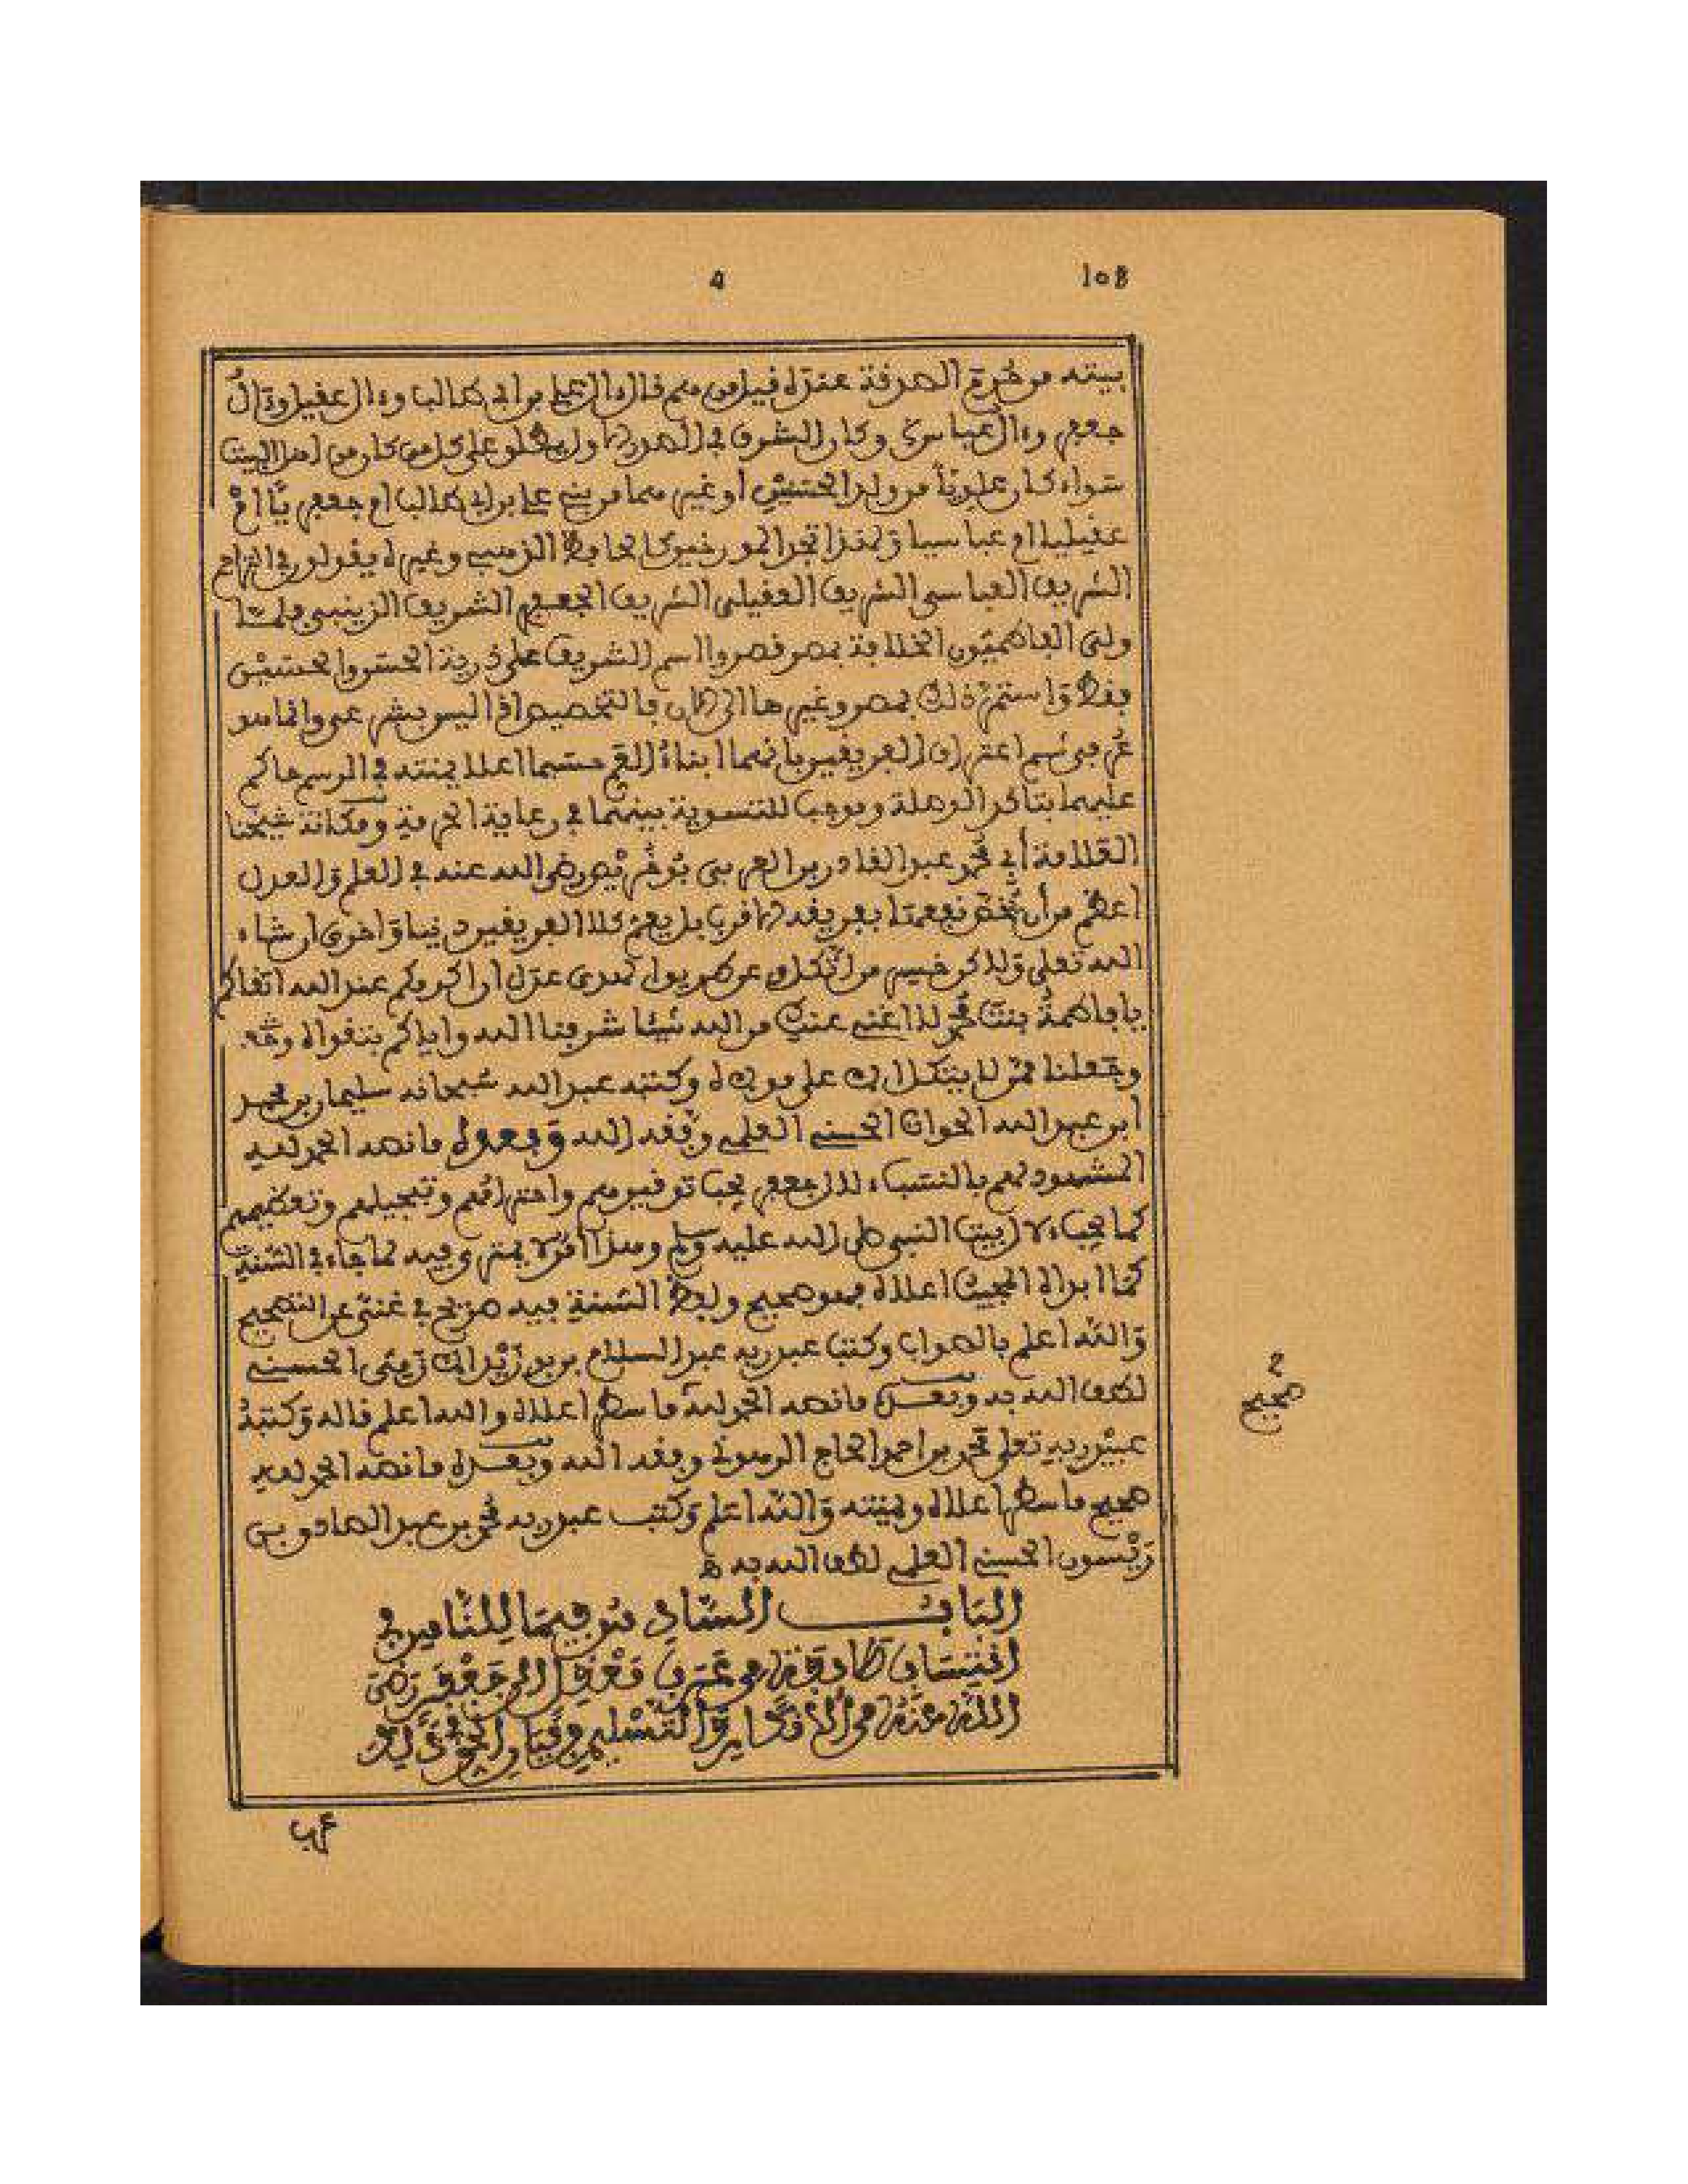 108
4
بيته من حرم الصدقة عنزله قيل من هم قال ءال علي بن ابي طالب وءال عقيل وءال
جعفر وءال عباس وكان الشرف في الصدر الاول يطلق على كل من كان من اهل البيت
سواء كان علويا من ولد الحسنين أو غيرهما من بني علي بن ابي طالب او جعفريا او
عقيليا او عباسيا ولهذا تجد المورخين كالحافظ الذهبي وغيره يقولون في التراجم
الشريف العباسي الشريف العقيلي الشريف الجعفري الشريف الزينبي فلما
ولى الفاطميون الخلافة بمصر قصروا اسم الشريف على ذرية الحسن والحسين
فقط واستمر ذلك بمصر وغيرها الى الان فالتخصيص اذا ليس بشرعي وانما هو
عرفي ثم اعتراف الفريقين بانهما ابناء العم حسبما اعلا يمنته في الرسم حاكم
عليهما بتاكد الوصلة وموجب للتسوية بينهما في رعاية الحرمة ومكانة شيخنا
العلامة أبي محمد عبد القادر بن العربي بوخريص رضي الله عنه في العلم والعدل
اعظم من أن تخص نفعهما بفريق دون اخر بل يعم كلا الفريقين دنيا واخرى ان شاء
الله تعلى ولاكن خسر من اتكل عن طريق الهدى عدل ان اكرمكم عند الله اتقاكم
يا فاطمة بنت محمد لا اغني عنك من الله شيئا شرفنا الله واياكم بتقواه
وجعلنا ممن لا يتكل الا على مولاه وكتبه عبد الله سبحانه سليمان بن محمد
ابن عبد الله الحوات الحسني العلمي وفقه الله وبعده ما نصه الحمد لله
المشهود لهم بالنسب ءال جعفر يجب توقيرهم واحترامهم وتبجيلهم وتعظيمهم
كما يجب ءال بيت النبي صلى الله عليه وسلم وهذا امر لا يمترى فيه لما جاء في السنة
كما ابداه المجيب اعلاه فهو صحيح ولفظ السنة فيه صريح في غنى عن التصحيح
والله اعلم بالصواب وكتب عبد ربه عبد السلام بن بوزيد الازمي الحسني
لطف الله به وبعده ما نصه الحمد لله ما سطر اعلاه والله اعلم قاله وكتبه
عبيد ربه تعلى محمد بن احمد الحاج الرهوني وفقه الله وبعده ما نصه الحمد لله
صحيح ما سطر اعلاه ويمنته والله اعلم وكتب عبد ربه محمد بن عبد الصادق بن
ريسون الحسني العلمي لطف الله به ه
صحيح
الباب الثاني فيما للناس في
انتساب طادفة من عرب معقل الى جعفر رضي
الله عنه من الانكار والتسليم وفيا
عرب